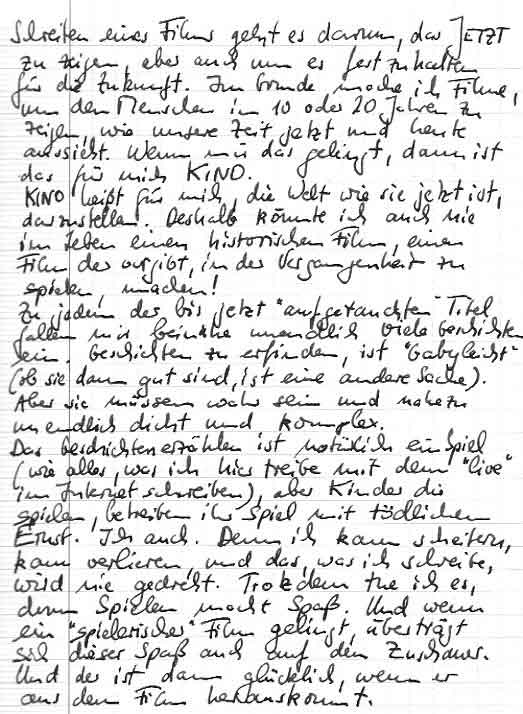 Schreiben eines Films geht es darum, das JETZT
zu zeigen, aber auch um es festzuhalten
für die Zukunft. Im Grunde, mache ich Filme,
um den Menschen in 10 oder 20 Jahren zu
zeigen, wie unsere Zeit jetzt und heute
aussieht. Wenn mir das gelingt, dann ist
das für mich KINO.
KINO heißt für mich, die Welt wie sie jetzt ist,
darzustellen. Deshalb könnte ich auch nie
im Leben einen historischen Film, einen
Film der vorgibt, in der Vergangenheit zu
spielen, machen!
Zu jedem der bis jetzt "aufgetauchten" Titel
fallen mir beinahe unendlich viele Geschichten
ein. Geschichten zu erfinden, ist "babyleicht"
(ob sie dann gut sind, ist eine andere Sache).
Aber sie müssen wahr sein und nahezu
unendlich dicht und komplex.
Das Geschichtenerzählen ist natürlich ein Spiel
(wie alles, was ich hier treibe mit dem "live"
im Internet schreiben), aber Kinder die
spielen, betreiben ihr Spiel mit tödlichem
Ernst. Ich auch. Denn ich kann scheitern,
kann verlieren, und das, was ich schreibe,
wird nie gedreht. Trotzdem tue ich es,
denn Spielen macht Spaß. Und wenn
ein "spielerischer" Film gelingt, überträgt
sich dieser Spaß auch auf den Zuschauer.
Und der ist dann glücklich, wenn er
aus dem Film herauskommt.